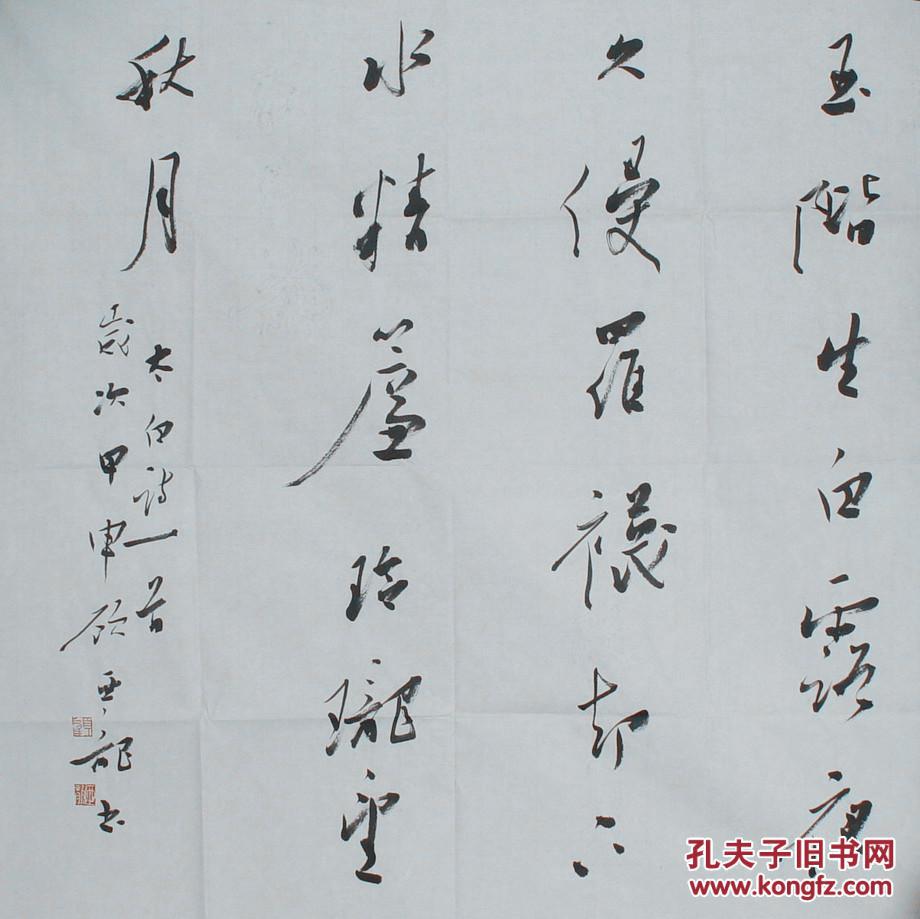 玉階生白露夜
久侵羅襪却下
水精簾玲瓏望
秋月
太白詩一首
歲次甲申顧亞龍书
孔夫子旧书网
www.kongfz.com